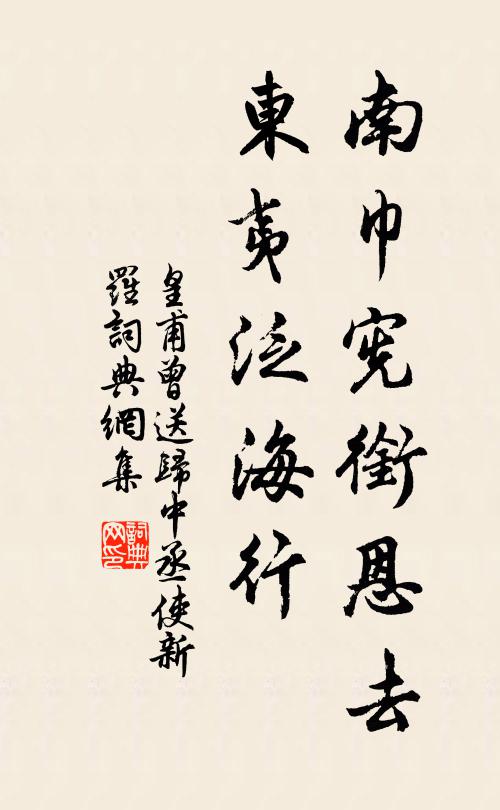 南巾宪銜恩去
東夷泛海行
皇甫曾送歸中丞使新
羅詞典網集
詞典
网印